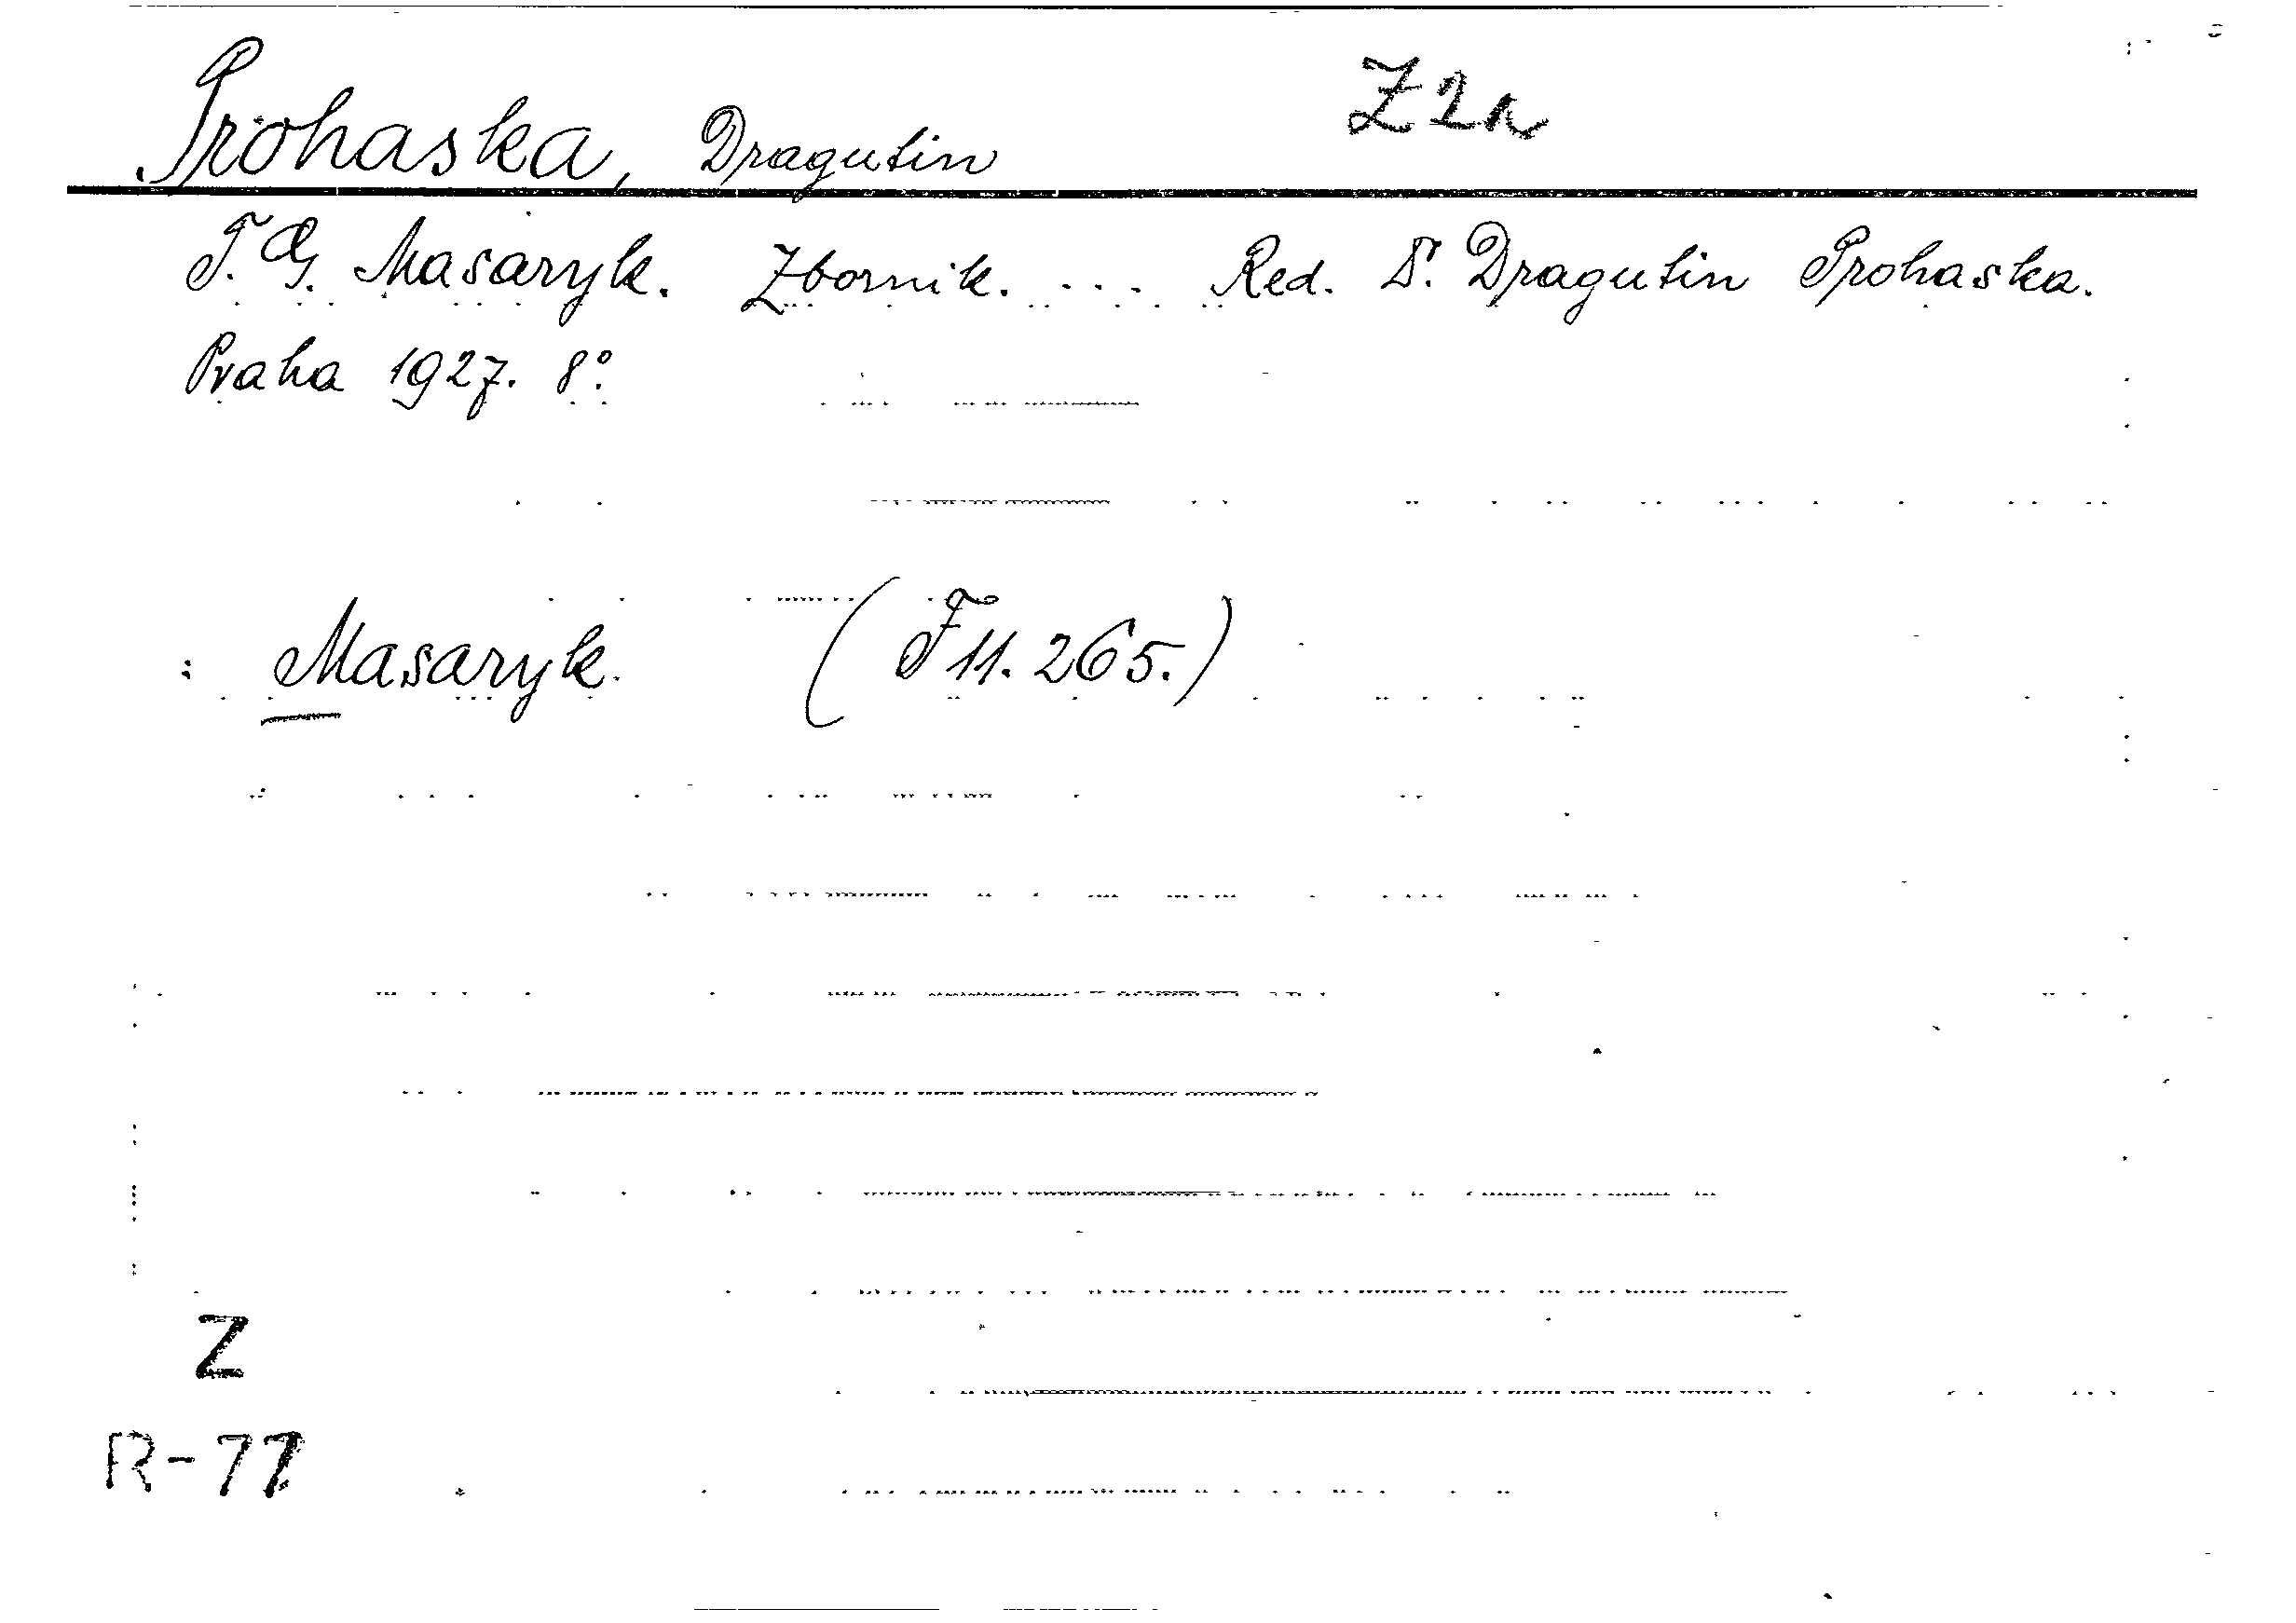 Prohaska, Dragutin
T. G. Masaryk. Zbornik. ... Red. Dr. Dragutin Prohaska.
Praha 1927. 8°.
Masaryk. (F 11. 265.)
Z
R-77